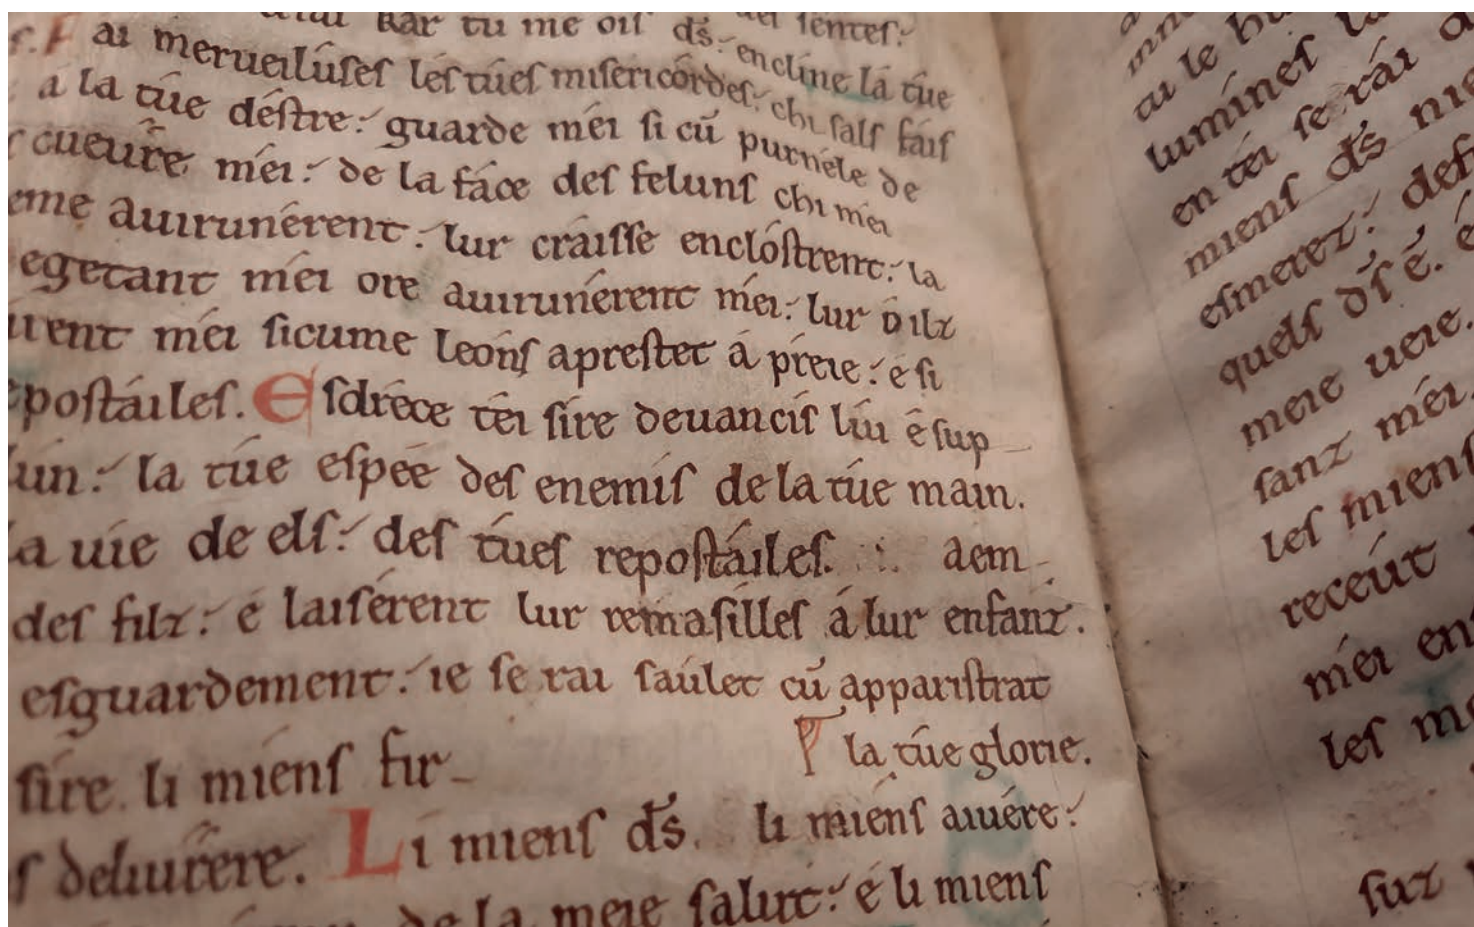 kar tu me oií ds. sentes:
ai merueiluses les tües misericórdes: encline la tüe
á la tüe déstre: guarde méi si cũ chi sals fais
cueuíre méi: de la fáce des feluns purnele de
eme auirunérent: lur craisse enclóstrent: chi méi
egetant méi ore auirunérent méi: lur oilz la
irent méi sicume leóns aprestet á preie: é si
epostáiles. Esdréce téi sire deuancis lúi é sup-
lun: la tüe espée des enemis de la tüe main.
a uie de els: des tües repostáiles. aem-
des filz: é laisérent lur remasilles á lur enfanz.
esguardement: ie serai saúlet cũ apparistrat
sire li miens fir- la tüe glorie.
s deliurére. Li miens ds. li miens aiuére:
de la meie salut: é li miens
tu le
lumínes
en téi serái
miens ds
esmerez:
quels ds ẽ.
meie ueie.
sanz méi.
les miens
receút
méi
les
sur